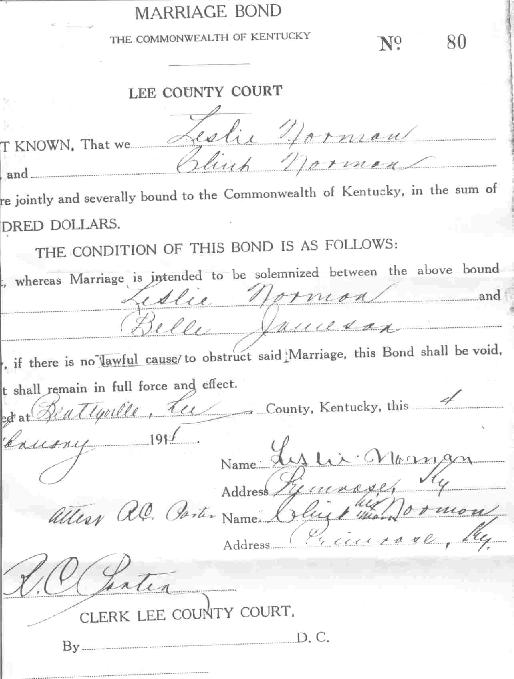 MARRIAGE BOND
THE COMMONWEALTH OF KENTUCKY
No. 80
LEE COUNTY COURT
T KNOWN, That we Leslie Norman
, and Clint Norman
re jointly and severally bound to the Commonwealth of Kentucky, in the sum of
DRED DOLLARS.
THE CONDITION OF THIS BOND IS AS FOLLOWS:
, whereas Marriage is intended to be solemnized between the above bound
Leslie Norman and
Belle Jameson
, if there is no lawful cause to obstruct said Marriage, this Bond shall be void,
t shall remain in full force and effect.
ed at Beattyville, Lee County, Kentucky, this 4
ebruary 1911.
Name Leslie Norman
Address Primrose, Ky
attest R.C. Porter Name Clint his mark Norman
Address Primrose, Ky.
R.C. Porter
CLERK LEE COUNTY COURT.
By D. C.